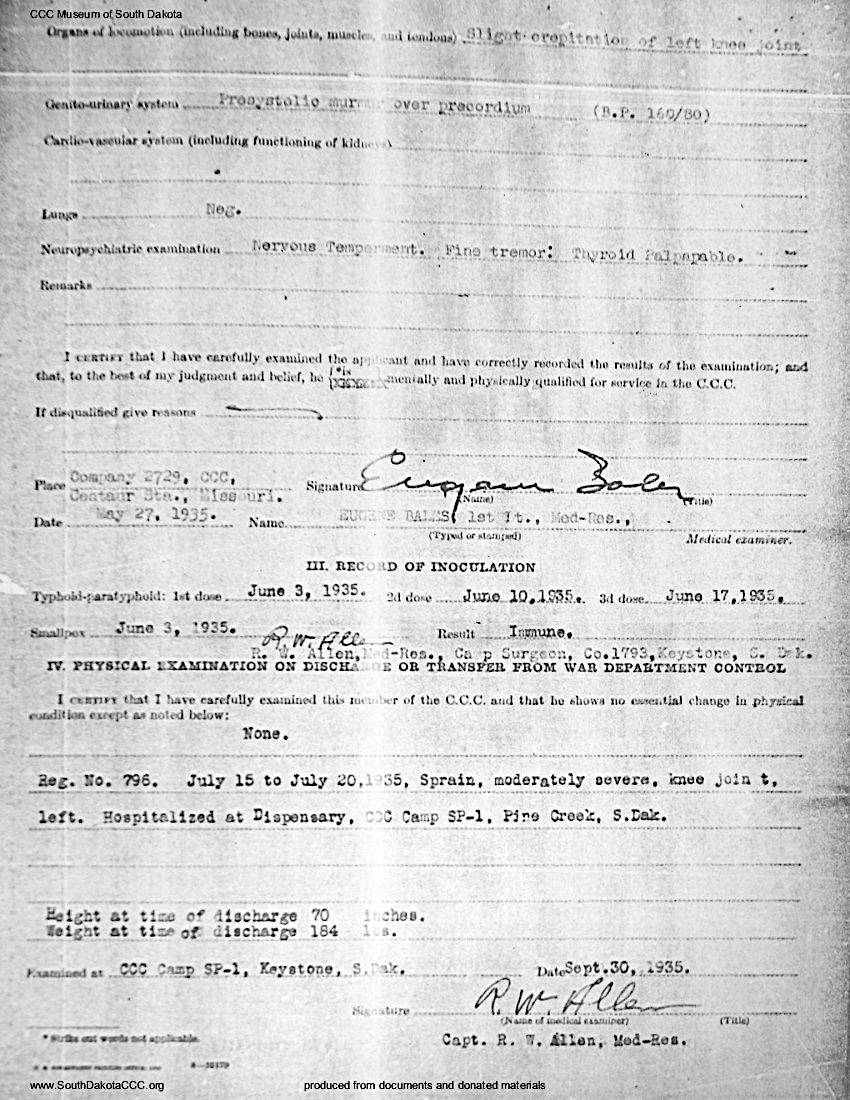 CCC Museum of South Dakota
Organs of locomotion (including bones, joints, muscles, and tendons) Slight crepitation of left knee joint
Genito-urinary system Presystolic murmur over precordium (B.P. 160/80)
Cardio-vascular system (including functioning of kidneys)
Lungs Neg.
Neuropsychiatric examination Nervous Temperment. Fine tremor: Thyroid Palpapable.
Remarks
I CERTIFY that I have carefully examined the applicant and have correctly recorded the results of the examination; and
that, to the best of my judgment and belief, he {*is mentally and physically qualified for service in the C.C.C.
If disqualified give reasons
Place Company 2729, CCC,
Centaur Sta., Missouri. Signature Eugene Bales
(Name) (Title)
Date May 27, 1935. Name EUGENE BALES, 1st Lt., Med-Res.,
(Typed or stamped) Medical examiner.
III. RECORD OF INOCULATION
Typhoid-paratyphoid: 1st dose June 3, 1935. 2d dose June 10,1935. 3d dose June 17,1935.
Smallpox June 3, 1935. R.W. Allen Result Immune.
R. W. Allen, Med-Res., Camp Surgeon, Co.1793, Keystone, S. Dak.
IV. PHYSICAL EXAMINATION ON DISCHARGE OR TRANSFER FROM WAR DEPARTMENT CONTROL
I CERTIFY that I have carefully examined this member of the C.C.C. and that he shows no essential change in physical
condition except as noted below:
None.
Reg. No. 796. July 15 to July 20,1935, Sprain, moderately severe, knee join t,
left. Hospitalized at Dispensary, CCC Camp SP-1, Pine Creek, S.Dak.
Height at time of discharge 70 inches.
Weight at time of discharge 184 lbs.
Examined at CCC Camp SP-1, Keystone, S.Dak. Date Sept.30, 1935.
Signature R.W. Allen
(Name of medical examiner) (Title)
* Strike out words not applicable. Capt. R. W. Allen, Med-Res.
www.SouthDakotaCCC.org produced from documents and donated materials